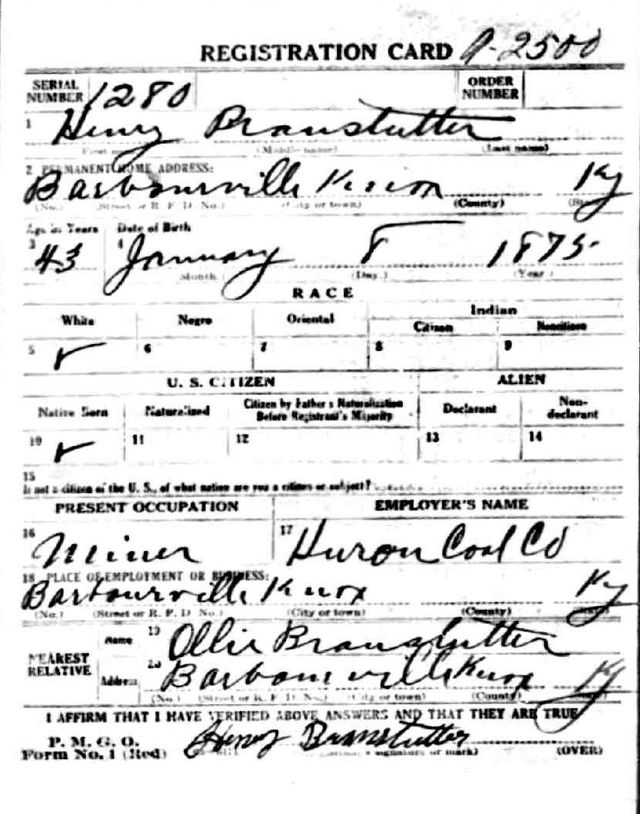 REGISTRATION CARD A-2500
SERIAL NUMBER 1280 ORDER NUMBER
1 Henry Branstutter
(First name) (Middle name) (Last name)
2 PERMANENT HOME ADDRESS:
Barbourville Knox Ky
(No.) (Street or R. F. D. No.) (City or town) (County) (State)
Age in Years Date of Birth
3 43 4 January 8 1875
(Month.) (Day.) (Year.)
RACE
White Negro Oriental Indian
Citizen Noncitizen
5 ✓ 6 7 8 9
U. S. CITIZEN ALIEN
Native Born Naturalized Citizen by Father's Naturalization Before Registrant's Majority Declarant Non-declarant
10 ✓ 11 12 13 14
15
If not a citizen of the U. S., of what nation are you a citizen or subject?
PRESENT OCCUPATION EMPLOYER'S NAME
16 Miner 17 Huron Coal Co
18 PLACE OF EMPLOYMENT OR BUSINESS:
Barbourville Knox Ky
(No.) (Street or R. F. D. No.) (City or town) (County)
NEAREST RELATIVE Name 19 Ollie Branstutter
Address 20 Barbourville Knox Ky
(No.) (Street or R. F. D. No.) (City or town) (County)
I AFFIRM THAT I HAVE VERIFIED ABOVE ANSWERS AND THAT THEY ARE TRUE
P. M. G. O.
Form No. 1 (Red) Henry Branstutter
signature or mark) (OVER)